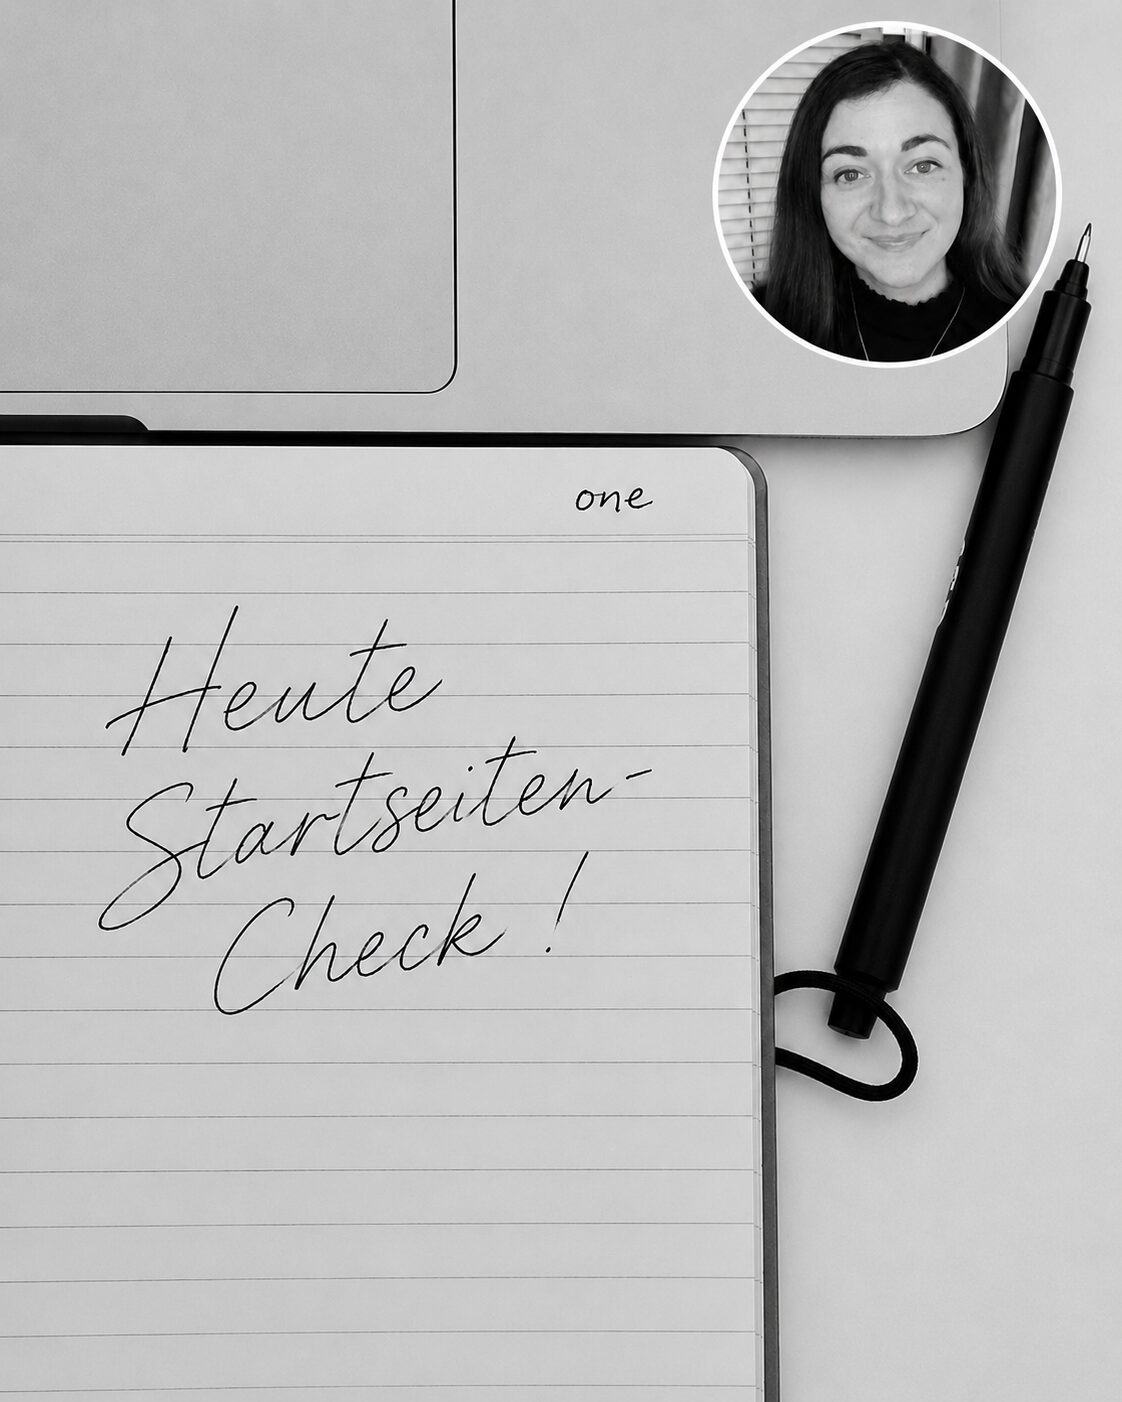 one
Heute
Startseiten-
Check !